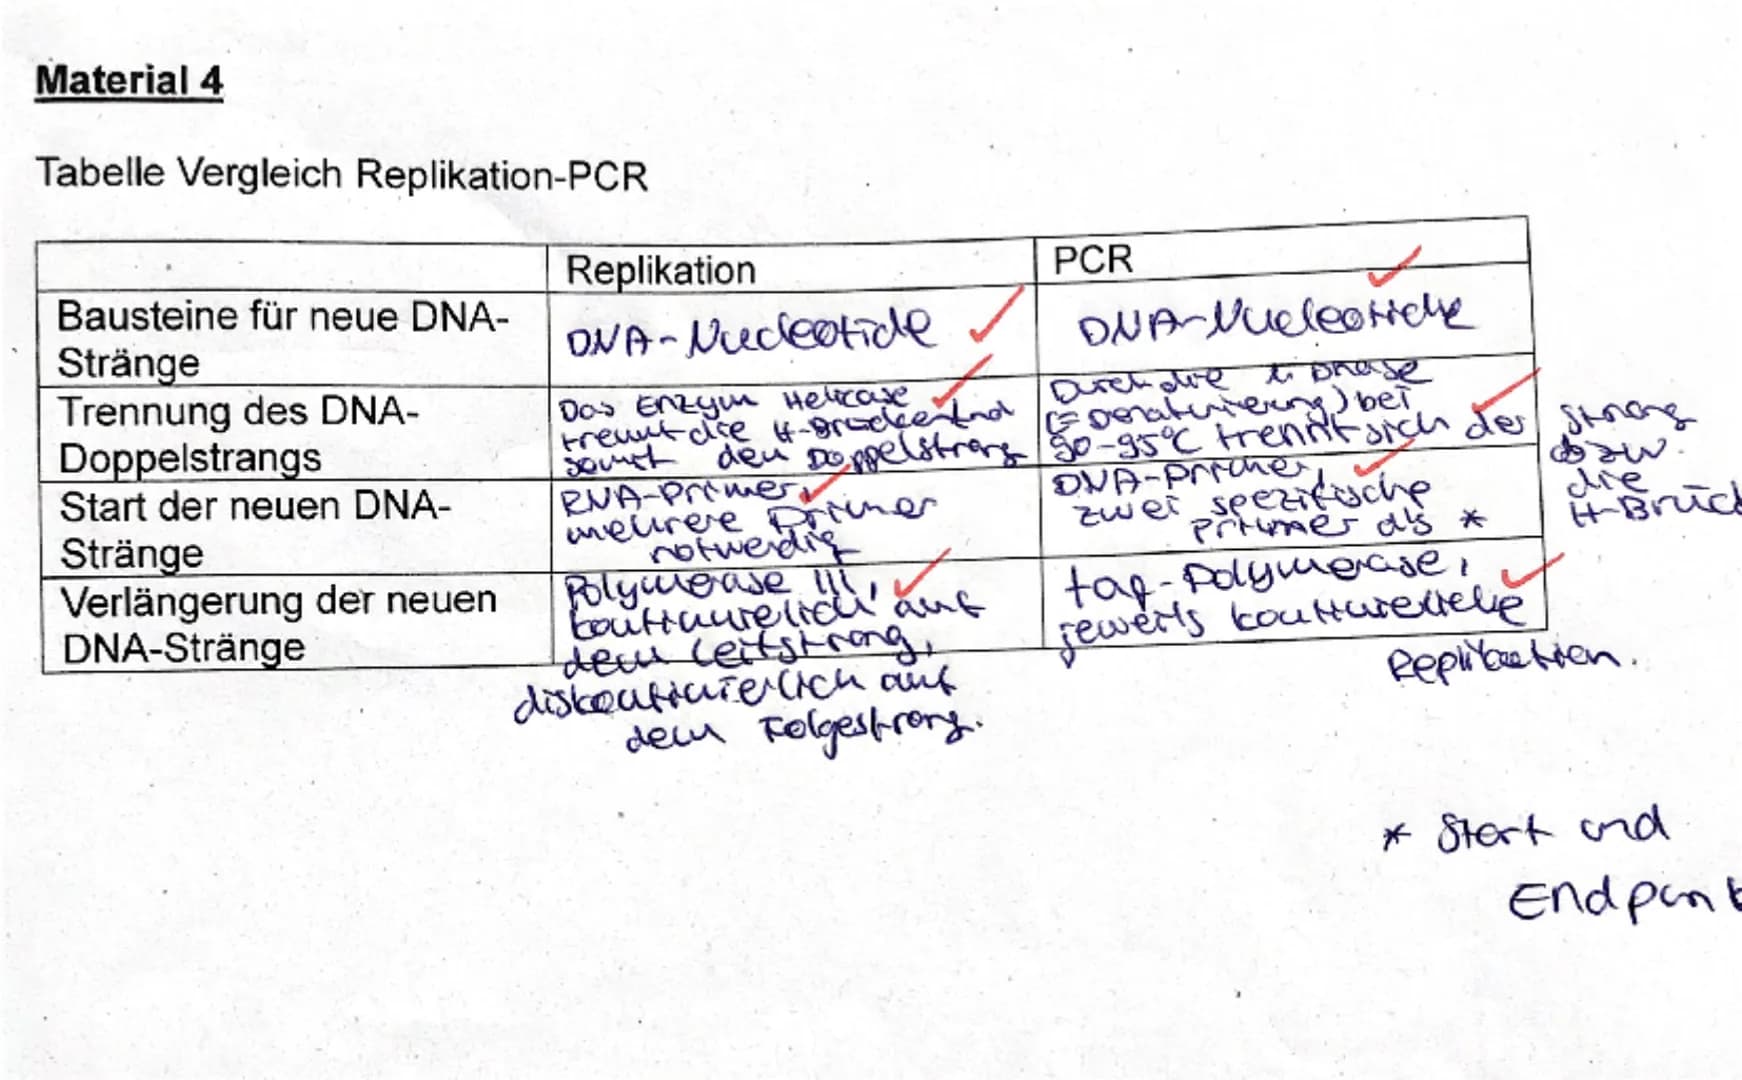 Material 4
Tabelle Vergleich Replikation-PCR
Replikation
PCR
Bausteine für neue DNA-
Stränge
DNA-Nucleotide
DNA-Nucleotide
Trennung des DNA-
Doppelstrangs
Das Enzym Helicase
trennt die H-Brücken und
somit den Doppelstrang
Durch die 1. Phase
(=Denaturierung) bei
90-95°C trennt sich der
Strang
bzw.
die
H-Brück
Start der neuen DNA-
Stränge
RNA-Primer,
mehrere Primer
notwendig
DNA-Primer,
zwei spezifische
Primer als *
Verlängerung der neuen
DNA-Stränge
Polymerase III,
kontinuierlich auf
dem Leitstrang,
diskontinuierlich auf
dem Folgestrang.
taq-Polymerase,
jeweils kontinuierliche
Replikation.
* Start und
Endpunk